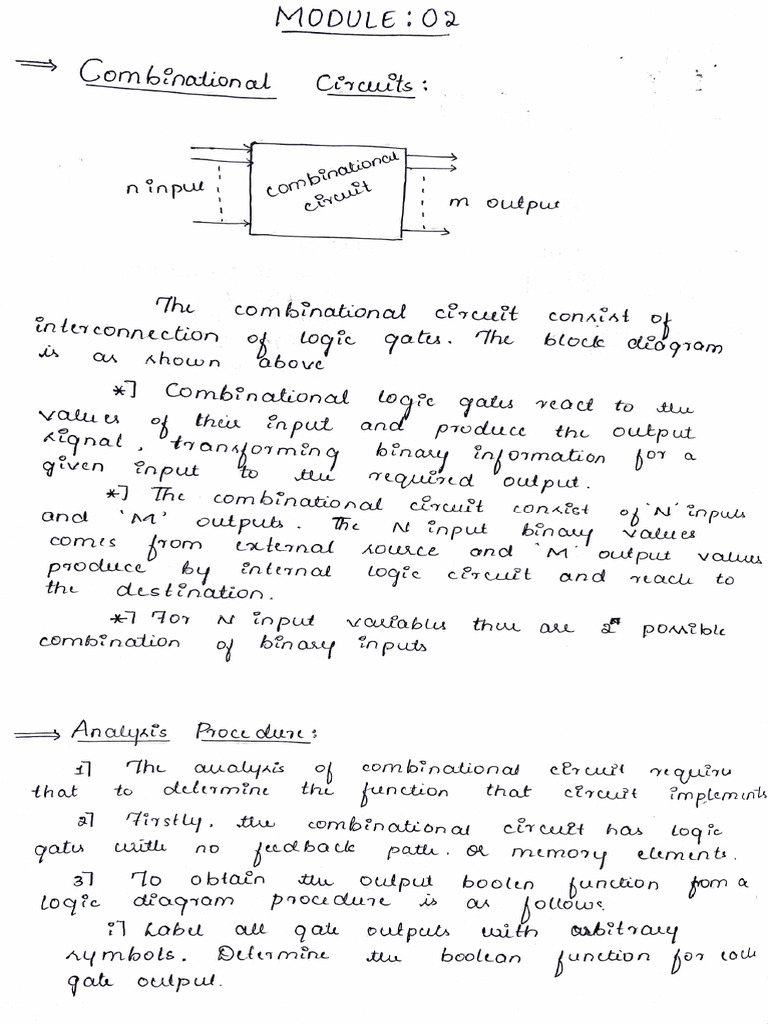 MODULE : 02
⟹ Combinational Circuits :
n input
combinational
circuit
m output
The combinational circuit consist of
interconnection of logic gates. The block diagram
is as shown above
*] Combinational logic gates react to the
values of their input and produce the output
signal, transforming binary information for a
given input to the required output.
*] The combinational circuit consist of 'N' inputs
and 'M' outputs. The N input binary values
comes from external source and 'M' output values
produce by internal logic circuit and reach to
the destination.
*] For N input variables there are 2ⁿ possible
combination of binary inputs
⟹ Analysis Procedure :
1] The analysis of combinational circuit require
that to determine the function that circuit implements
2] Firstly, the combinational circuit has logic
gates with no feedback path. or memory elements.
3] To obtain the output boolen function from a
logic diagram procedure is as follows.
i] Label all gate outputs with arbitrary
symbols. Determine the boolean function for each
gate output.